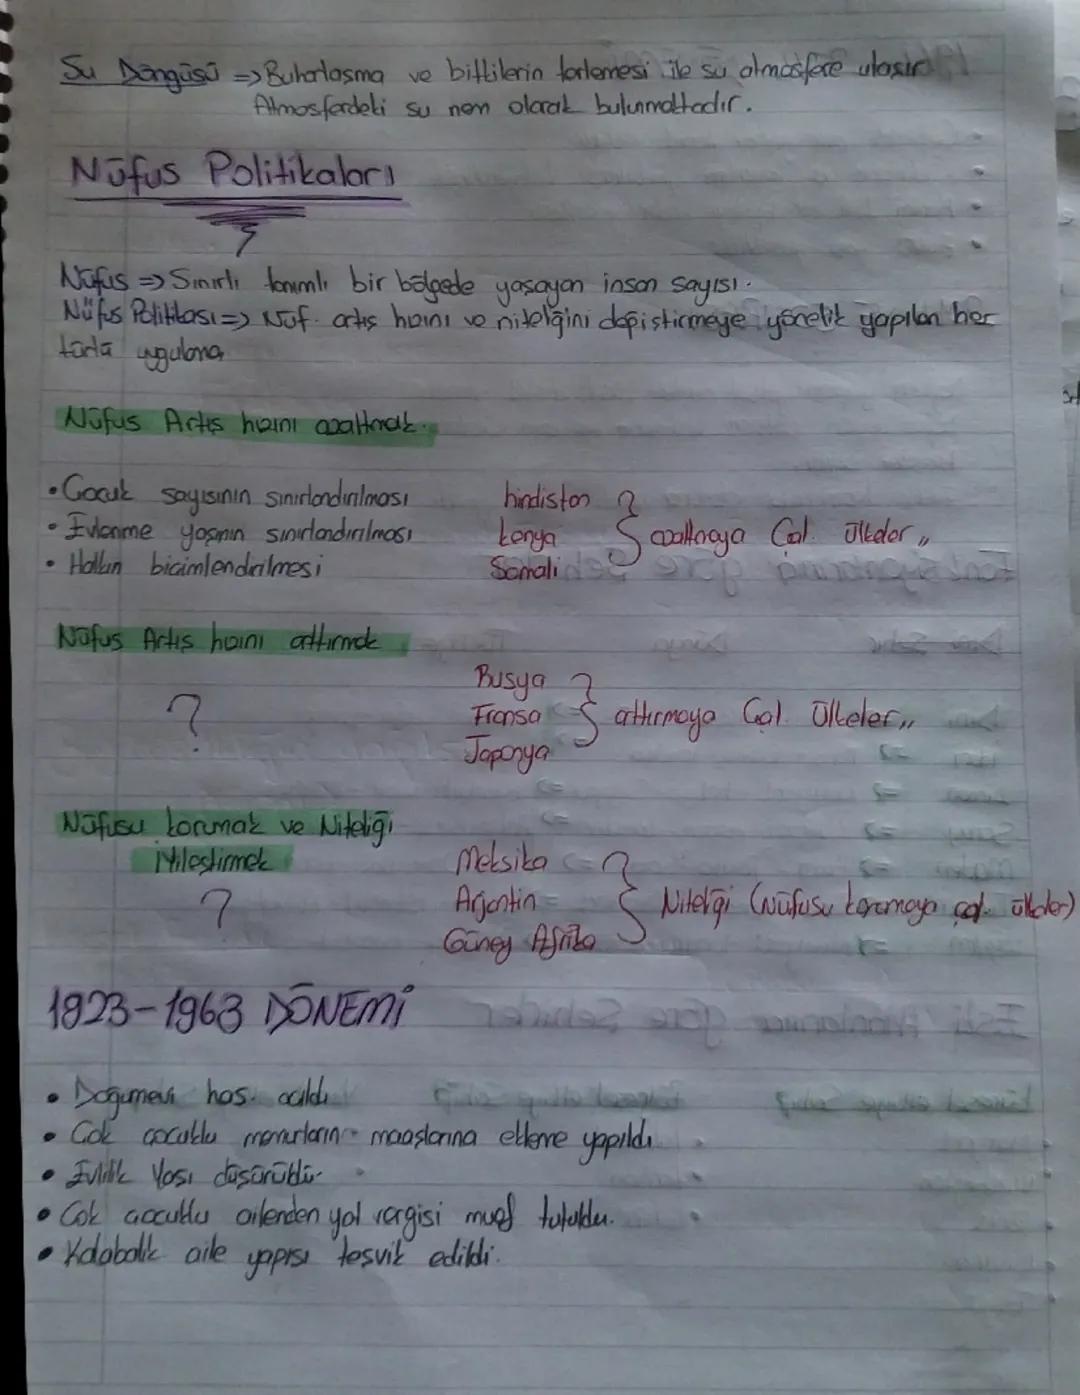 Su Döngüsü => Buharlaşma ve bitkilerin terlemesi ile su atmosfere ulaşır
Atmosferdeki su nem olarak bulunmaktadır.
Nüfus Politikaları
Nüfus => Sınırlı tanımlı bir bölgede yaşayan insan sayısı.
Nüfus Politikası => Nüf. artış hızını ve niteliğini değiştirmeye yönelik yapılan her
türlü uygulama
Nüfus Artış hızını azaltmak.
• Çocuk sayısının sınırlandırılması
• Evlenme yaşının sınırlandırılması
• Halkın bicimlendirilmesi
hindistan
kenya
Somali
azaltmaya Çal. Ülkeler,,
Nüfus Artış hızını arttırmak
?
Rusya
Fransa
Japonya
arttırmaya Çal. Ülkeler,,
Nüfusu korumak ve Niteliği
İyileştirmek
?
Meksika
Arjantin
Güney Afrika
Niteliği (Nüfusu korumaya çal. ülkeler)
1923-1963 DÖNEMİ
• Doğumevi has. açıldı
• Çok çocuklu memurların maaşlarına ekleme yapıldı
• Evlilik Yaşı düşürüldü.
• Çok çocuklu ailenden yol vergisi muaf tutuldu.
• Kalabalık aile yapısı teşvik edildi.